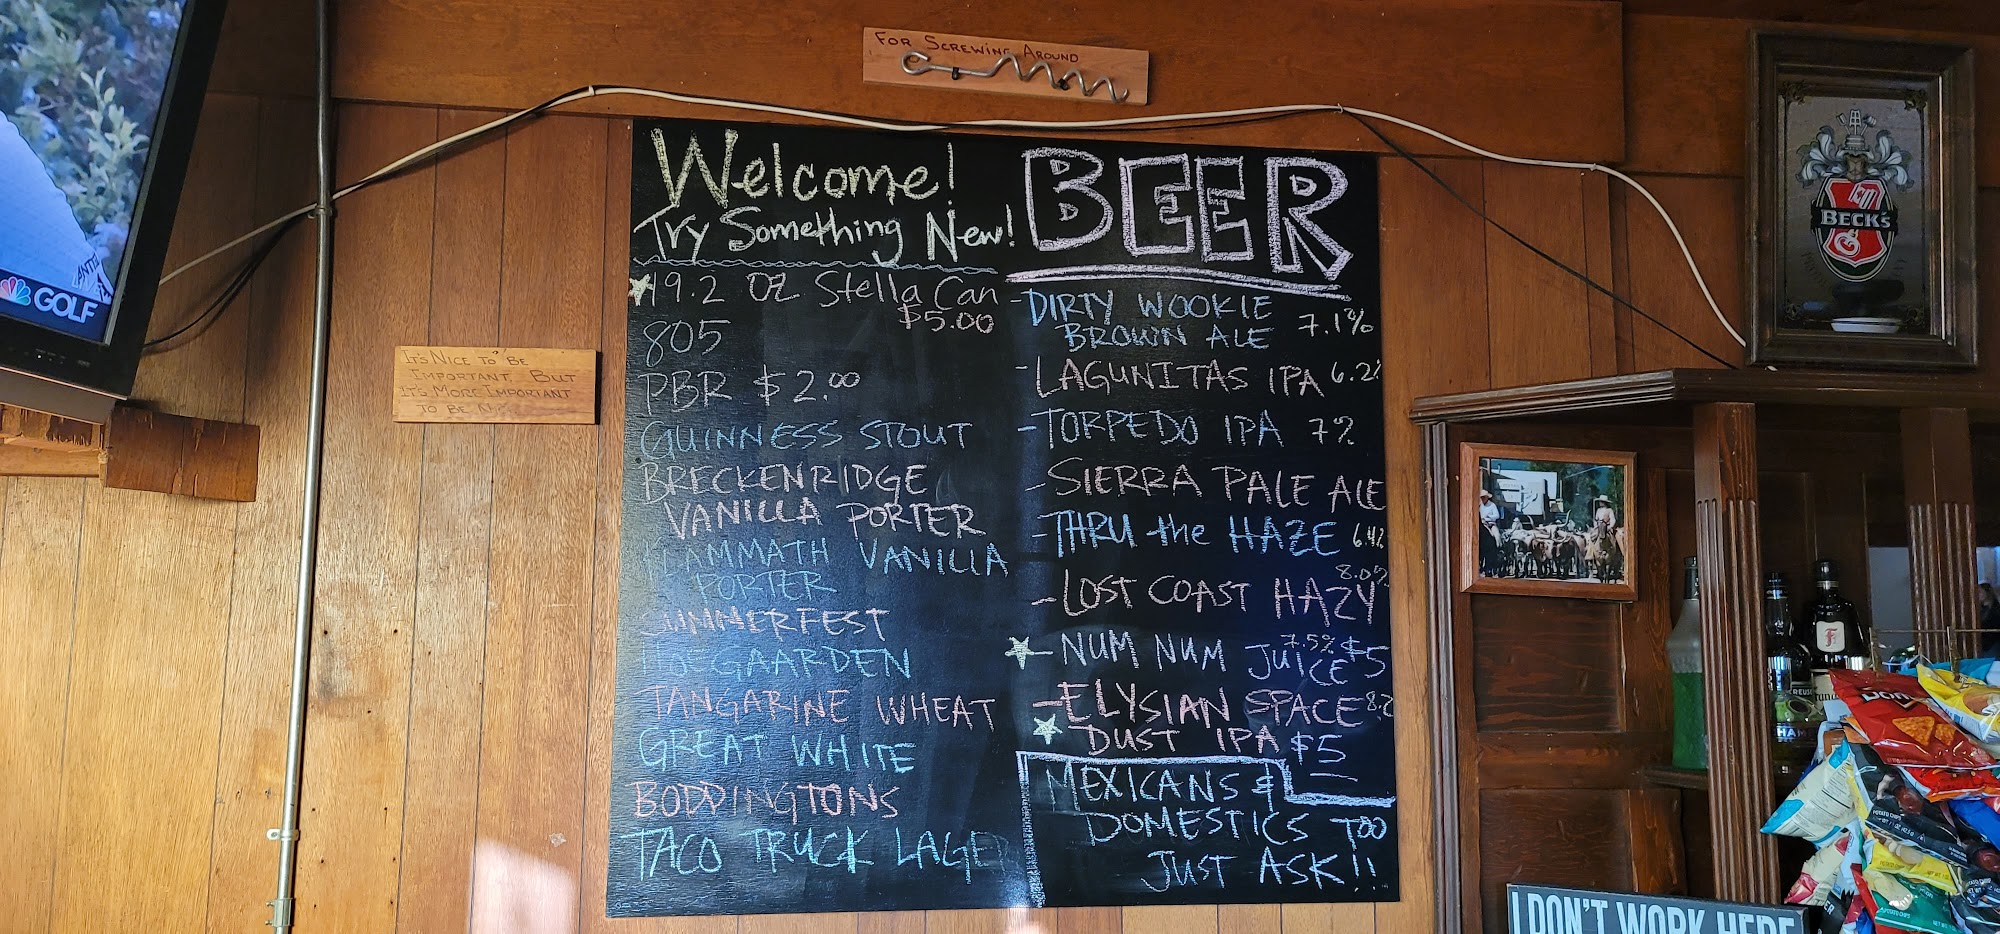 FOR SCREWING AROUND
Welcome!
Try Something New!
19.2 OZ Stella Can
$5.00
805
PBR $2.00
GUINNESS STOUT
BRECKENRIDGE
VANILLA PORTER
KLAMMATH VANILLA
PORTER
SUMMERFEST
HOEGAARDEN
TANGARINE WHEAT
GREAT WHITE
BODDINGTONS
TACO TRUCK LAGER
BEER
-DIRTY WOOKIE
BROWN ALE 7.1%
-LAGUNITAS IPA 6.2%
-TORPEDO IPA 7%
-SIERRA PALE ALE
-THRU the HAZE 6.4%
8.0%
-LOST COAST HAZY
7.5% $5
-NUM NUM JUICE
-ELYSIAN SPACE 8.2
DUST IPA $5
MEXICANS &
DOMESTICS TOO
JUST ASK!!
IT'S NICE TO BE
IMPORTANT, BUT
IT'S MORE IMPORTANT
TO BE
GOLF
BECK'S
I DON'T WORK HERE